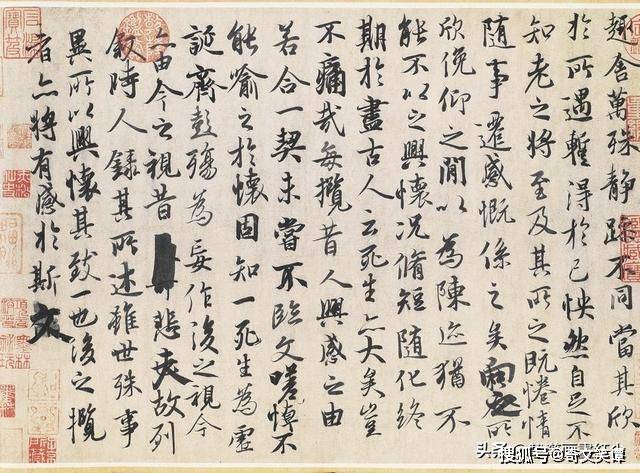 趣舍萬殊靜躁不同當其欣
於所遇蹔得於己怏然自足不
知老之將至及其所之既惓情
隨事遷感慨係之矣向之所
欣俛仰之閒以為陳迹猶不
能不以之興懷況脩短隨化終
期於盡古人云死生亦大矣豈
不痛哉每攬昔人興感之由
若合一契未嘗不臨文嗟悼不
能喻之於懷固知一死生為虛
誕齊彭殤為妄作後之視今
亦由今之視昔悲夫故列
敘時人錄其所述雖世殊事
異所以興懷其致一也後之攬
者亦將有感於斯文
搜狐号@奇文笑谭